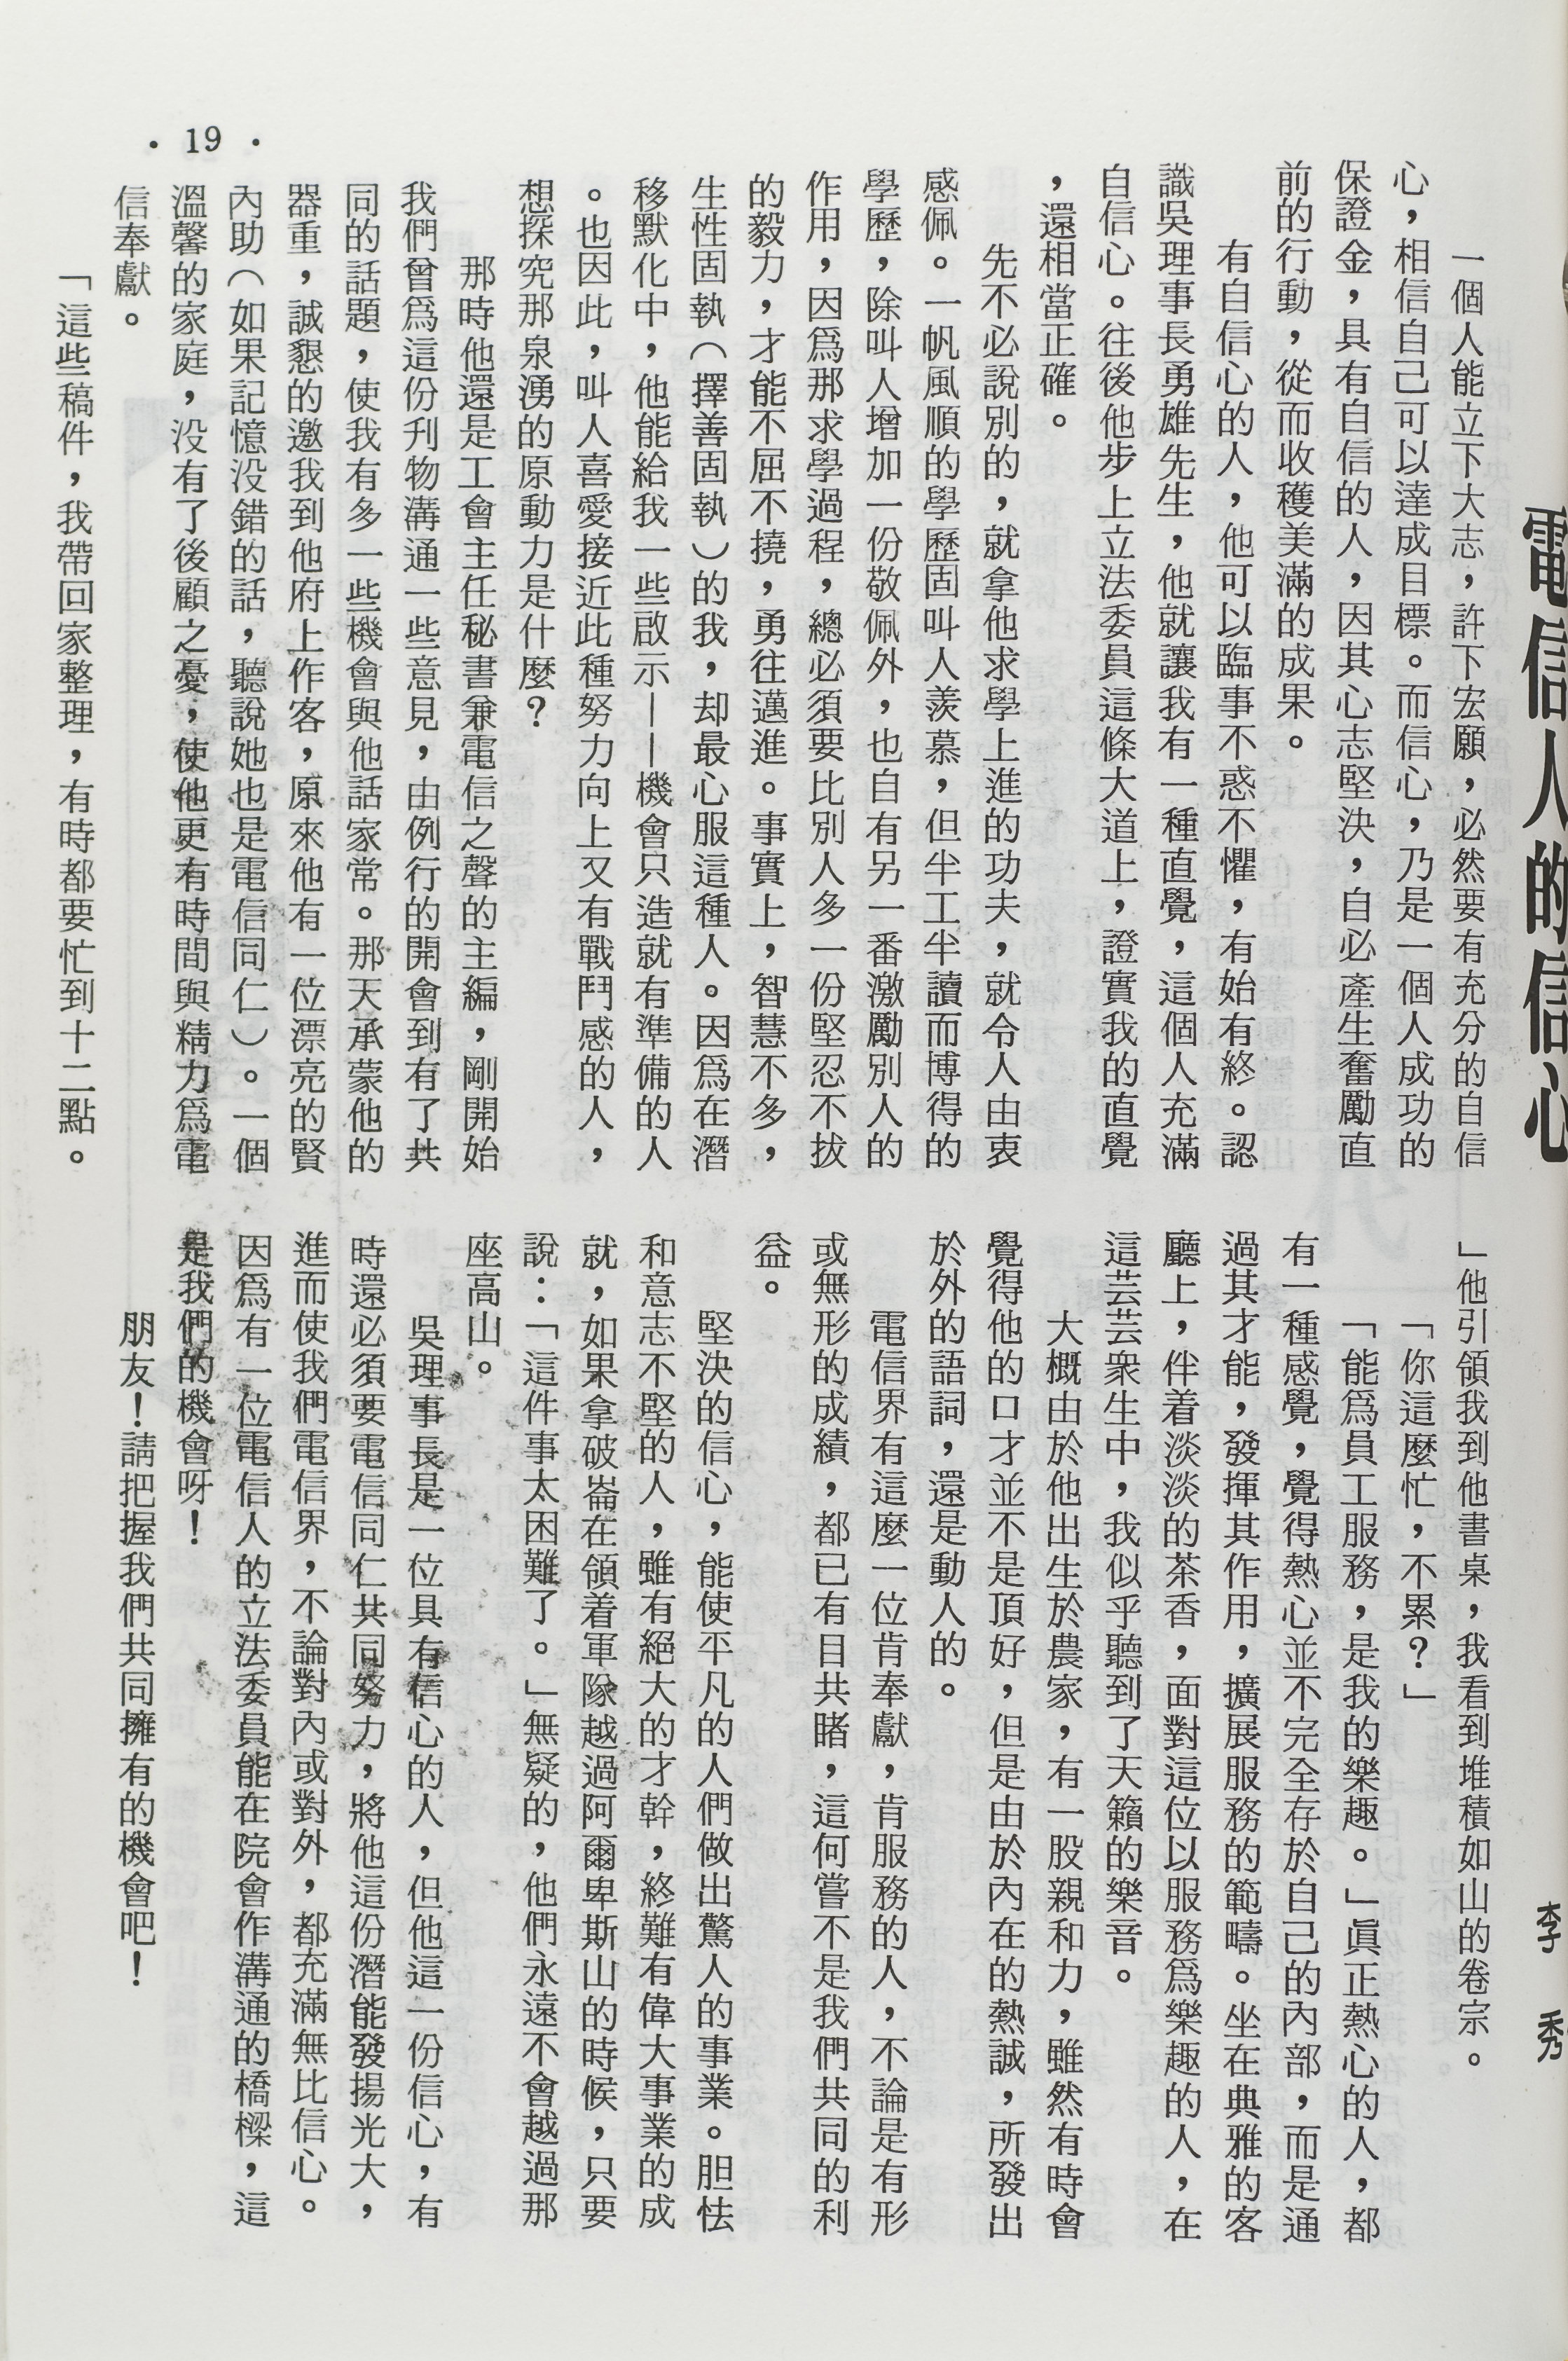 電信人的信心
李秀
一個人能立下大志，許下宏願，必然要有充分的自信
心，相信自己可以達成目標。而信心，乃是一個人成功的
保證金，具有自信的人，因其心志堅決，自必產生奮勵直
前的行動，從而收穫美滿的成果。
有自信心的人，他可以臨事不惑不懼，有始有終。認
識吳理事長勇雄先生，他就讓我有一種直覺，這個人充滿
自信心。往後他步上立法委員這條大道上，證實我的直覺
，還相當正確。
先不必說別的，就拿他求學上進的功夫，就令人由衷
感佩。一帆風順的學歷固叫人羨慕，但半工半讀而博得的
學歷，除叫人增加一份敬佩外，也自有另一番激勵別人的
作用，因爲那求學過程，總必須要比別人多一份堅忍不拔
的毅力，才能不屈不撓，勇往邁進。事實上，智慧不多，
生性固執（擇善固執）的我，却最心服這種人。因爲在潛
移默化中，他能給我一些啟示——機會只造就有準備的人
。也因此，叫人喜愛接近此種努力向上又有戰鬥感的人，
想探究那泉湧的原動力是什麼？
那時他還是工會主任秘書兼電信之聲的主編，剛開始
我們曾爲這份刋物溝通一些意見，由例行的開會到有了共
同的話題，使我有多一些機會與他話家常。那天承蒙他的
器重，誠懇的邀我到他府上作客，原來他有一位漂亮的賢
內助（如果記憶没錯的話，聽說她也是電信同仁）。一個
溫馨的家庭，没有了後顧之憂，使他更有時間與精力爲電
信奉獻。
「這些稿件，我帶回家整理，有時都要忙到十二點。
」他引領我到他書桌，我看到堆積如山的卷宗。
「你這麼忙，不累？」
「能爲員工服務，是我的樂趣。」眞正熱心的人，都
有一種感覺，覺得熱心並不完全存於自己的內部，而是通
過其才能，發揮其作用，擴展服務的範疇。坐在典雅的客
廳上，伴着淡淡的茶香，面對這位以服務爲樂趣的人，在
這芸芸衆生中，我似乎聽到了天籟的樂音。
大概由於他出生於農家，有一股親和力，雖然有時會
覺得他的口才並不是頂好，但是由於內在的熱誠，所發出
於外的語詞，還是動人的。
電信界有這麼一位肯奉獻，肯服務的人，不論是有形
或無形的成績，都已有目共睹，這何嘗不是我們共同的利
益。
堅決的信心，能使平凡的人們做出驚人的事業。胆怯
和意志不堅的人，雖有絕大的才幹，終難有偉大事業的成
就，如果拿破崙在領着軍隊越過阿爾卑斯山的時候，只要
說：「這件事太困難了。」無疑的，他們永遠不會越過那
座高山。
吳理事長是一位具有信心的人，但他這一份信心，有
時還必須要電信同仁共同努力，將他這份潛能發揚光大，
進而使我們電信界，不論對內或對外，都充滿無比信心。
因爲有一位電信人的立法委員能在院會作溝通的橋樑，這
是我們的機會呀！
朋友！請把握我們共同擁有的機會吧！
· 19 ·